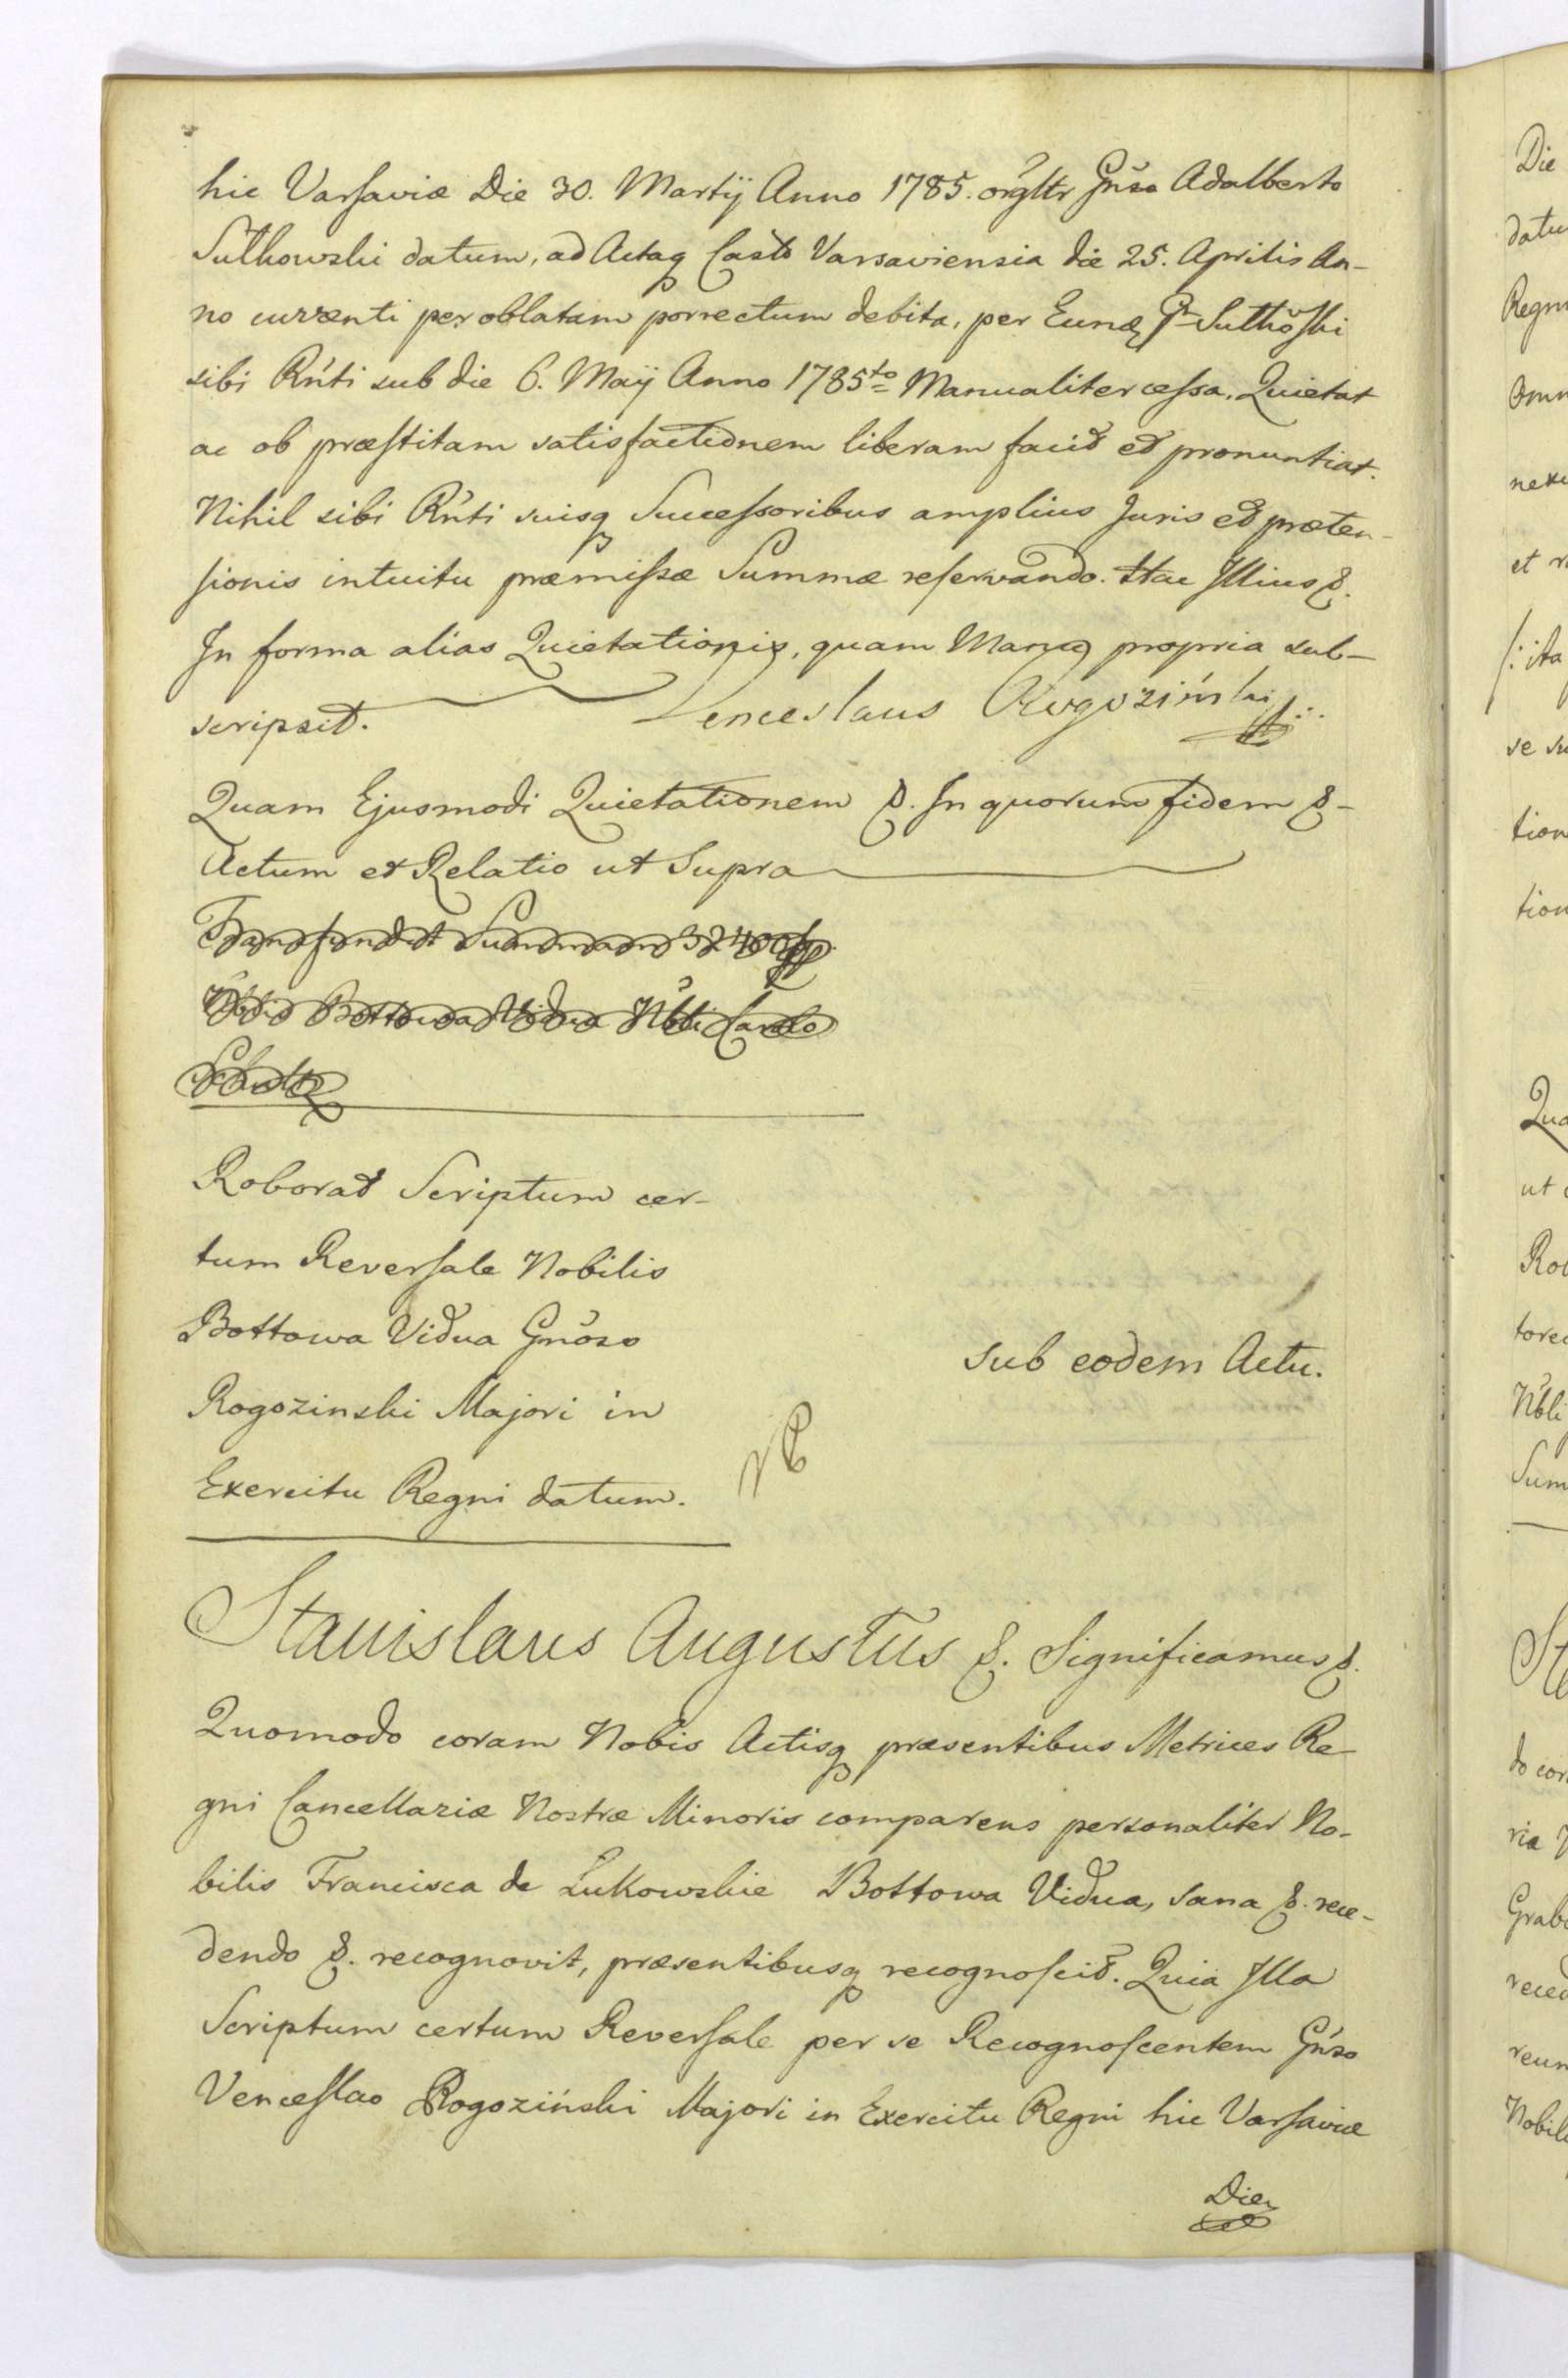 hic Varsaviæ Die 30. Martij Anno 1785. orgltr Gnŏso Adalberto
Sułkowski datum, ad Actaq Casto Varsaviensia die 25. Aprilis An-
no currenti per oblatam porrectum debita, per Eunq Pr Sułkŏski
sibi Rńti sub die 6. Maij Anno 1785to Manualiter cessa, Quietat
ac ob præstitam satisfactionem liberam facit et pronuntiat.
Nihil sibi Rńti suisq Successoribus amplius Juris et præten-
sionis intuitu præmissæ Summæ reservando. Hac Illius &.
In forma alias Quietationis, quam Manu propria sub-
scripsit. Venceslaus Rogoziński
Quam Ejusmodi Quietationem &. In quorum fidem &-
Actum et Relatio ut Supra
Transfundit Summam 32400
Nblis Bottowa Vidua Nbli Carolo
Schultz
Roborat Scriptum cer-
tum Reversale Nobilis
Bottowa Vidua Gnŏso
Rogozinski Majori in
Exercitu Regni datum.
sub eodem Actu.
Stanislaus Augustus &. Significamus &.
Quomodo coram Nobis Actisq præsentibus Metrices Re-
gni Cancellariæ Nostræ Minoris comparens personaliter No-
bilis Francisca de Łukowskie Bottowa Vidua, sana &. rece-
dendo &. recognovit, præsentibusq recognoscit. Quia Illa
Scriptum certum Reversale per se Recognoscentem Gńso
Venceslao Rogoziński Majori in Exercitu Regni hic Varsaviæ
Die
Die
datu
Regn
omn
nexu
et r
/: ita
se su
tion
tion
Qua
ut
Rob
tore
Nbli
Sum
St
do cor
ria
Grab
rece
reun
Nobil